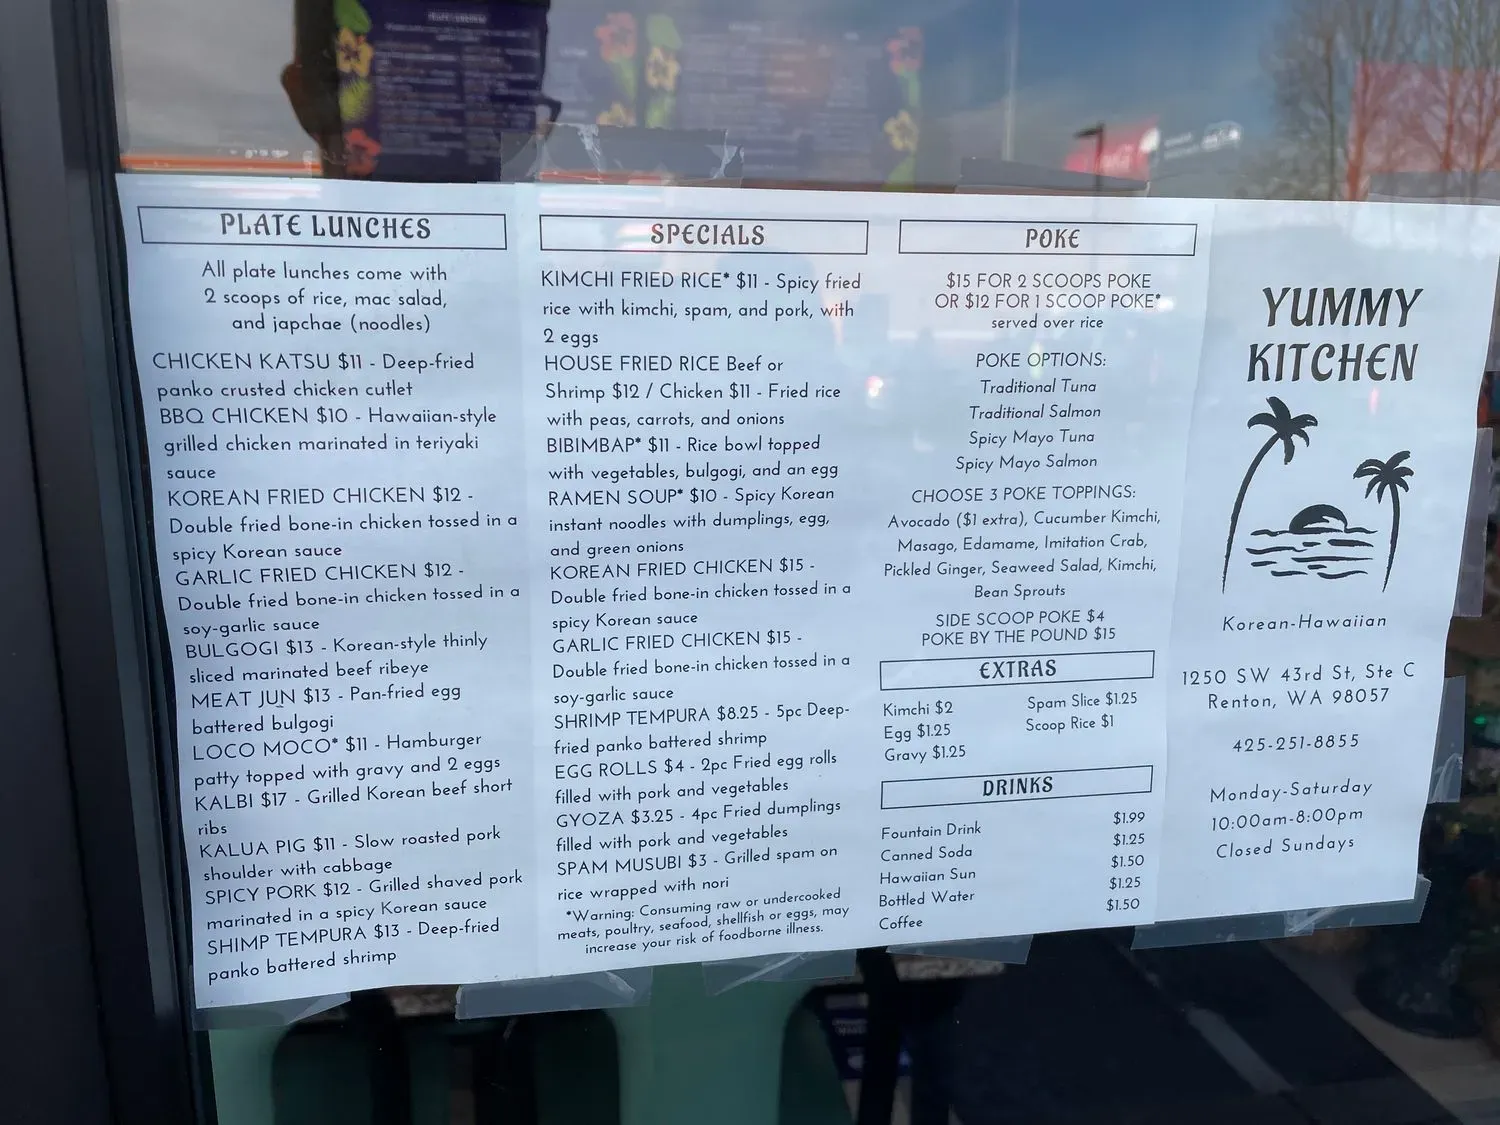 PLATE LUNCHES
All plate lunches come with
2 scoops of rice, mac salad,
and japchae (noodles)
CHICKEN KATSU $11 - Deep-fried
panko crusted chicken cutlet
BBQ CHICKEN $10 - Hawaiian-style
grilled chicken marinated in teriyaki
sauce
KOREAN FRIED CHICKEN $12 -
Double fried bone-in chicken tossed in a
spicy Korean sauce
GARLIC FRIED CHICKEN $12 -
Double fried bone-in chicken tossed in a
soy-garlic sauce
BULGOGI $13 - Korean-style thinly
sliced marinated beef ribeye
MEAT JUN $13 - Pan-fried egg
battered bulgogi
LOCO MOCO* $11 - Hamburger
patty topped with gravy and 2 eggs
KALBI $17 - Grilled Korean beef short
ribs
KALUA PIG $11 - Slow roasted pork
shoulder with cabbage
SPICY PORK $12 - Grilled shaved pork
marinated in a spicy Korean sauce
SHIMP TEMPURA $13 - Deep-fried
panko battered shrimp
SPECIALS
KIMCHI FRIED RICE* $11 - Spicy fried
rice with kimchi, spam, and pork, with
2 eggs
HOUSE FRIED RICE Beef or
Shrimp $12 / Chicken $11 - Fried rice
with peas, carrots, and onions
BIBIMBAP* $11 - Rice bowl topped
with vegetables, bulgogi, and an egg
RAMEN SOUP* $10 - Spicy Korean
instant noodles with dumplings, egg,
and green onions
KOREAN FRIED CHICKEN $15 -
Double fried bone-in chicken tossed in a
spicy Korean sauce
GARLIC FRIED CHICKEN $15 -
Double fried bone-in chicken tossed in a
soy-garlic sauce
SHRIMP TEMPURA $8.25 - 5pc Deep-
fried panko battered shrimp
EGG ROLLS $4 - 2pc Fried egg rolls
filled with pork and vegetables
GYOZA $3.25 - 4pc Fried dumplings
filled with pork and vegetables
SPAM MUSUBI $3 - Grilled spam on
rice wrapped with nori
*Warning: Consuming raw or undercooked
meats, poultry, seafood, shellfish or eggs, may
increase your risk of foodborne illness.
POKE
$15 FOR 2 SCOOPS POKE
OR $12 FOR 1 SCOOP POKE*
served over rice
POKE OPTIONS:
Traditional Tuna
Traditional Salmon
Spicy Mayo Tuna
Spicy Mayo Salmon
CHOOSE 3 POKE TOPPINGS:
Avocado ($1 extra), Cucumber Kimchi,
Masago, Edamame, Imitation Crab,
Pickled Ginger, Seaweed Salad, Kimchi,
Bean Sprouts
SIDE SCOOP POKE $4
POKE BY THE POUND $15
EXTRAS
Kimchi $2
Egg $1.25
Gravy $1.25
Spam Slice $1.25
Scoop Rice $1
DRINKS
Fountain Drink $1.99
Canned Soda $1.25
Hawaiian Sun $1.50
Bottled Water $1.25
Coffee $1.50
YUMMY
KITCHEN
Korean-Hawaiian
1250 SW 43rd St, Ste C
Renton, WA 98057
425-251-8855
Monday-Saturday
10:00am-8:00pm
Closed Sundays